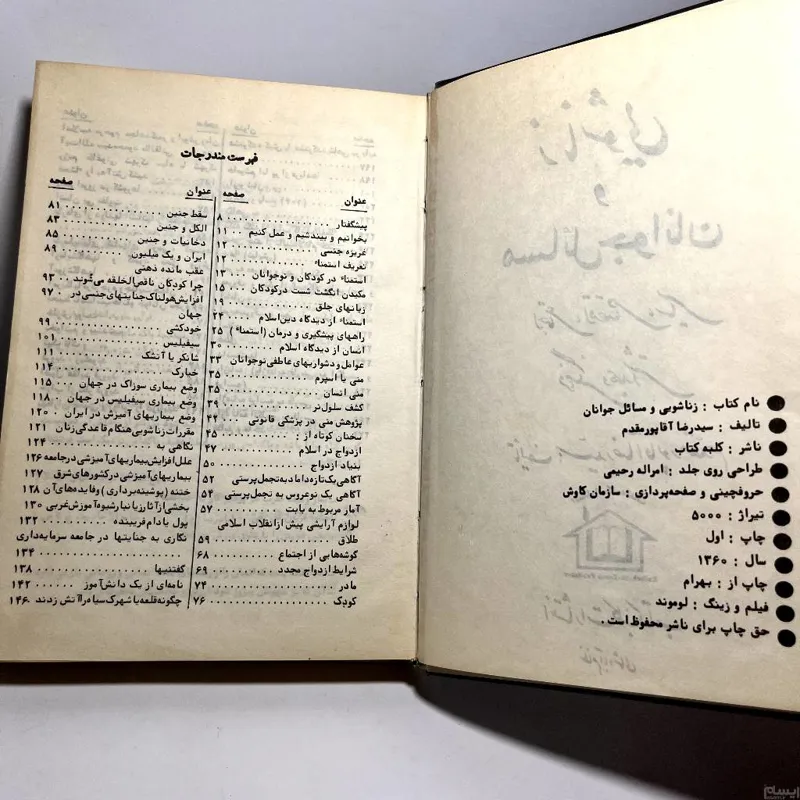 زناشویی
و
مسائل جوانان
نام کتاب : زناشویی و مسائل جوانان
تالیف : سیدرضا آقاپورمقدم
ناشر : کلبه کتاب
طراحی روی جلد : امراله رحیمی
حروفچینی و صفحه‌پردازی : سازمان کاوش
تیراژ : ۵۰۰۰
چاپ : اول
سال : ۱۳۶۰
چاپ از : بهرام
فیلم و زینگ : لوموند
حق چاپ برای ناشر محفوظ است .
فهرست مندرجات
عنوان صفحه
پیشگفتار ۸
بخوانیم و بیندیشیم و عمل کنیم ۱۱
غریزه جنسی ۱۲
تعریف استمناء ۱۲
استمناء در کودکان و نوجوانان ۱۳
مکیدن انگشت شست درکودکان ۱۵
زیانهای جلق ۱۹
استمناء از دیدگاه دین‌اسلام ۲۴
راههای پیشگیری و درمان (استمناء) ۲۵
انسان از دیدگاه اسلام ۳۰
عوامل و دشواریهای عاطفی نوجوانان ۳۳
منی یا اسپرم ۳۵
منی انسان ۳۵
کشف سلول‌نر ۳۹
پژوهش منی در پزشکی قانونی ۴۲
سخنان کوتاه از : ۴۵
ازدواج در اسلام ۴۷
بنیاد ازدواج ۵۰
آگاهی یک‌تازه‌داماد به‌تجمل‌پرستی ۵۲
آگاهی یک نوعروس به تجمل‌پرستی ۵۴
آمار مربوط به بابت ۵۷
لوازم آرایشی پیش از انقلاب اسلامی
طلاق ۵۹
گوشه‌هایی از اجتماع ۶۸
شرایط ازدواج مجدد ۶۹
مادر ۷۴
کودک ۷۶
عنوان صفحه
سقط جنین ۸۱
الکل و جنین ۸۳
دخانیات و جنین ۸۵
ایران و یک میلیون ۸۹
عقب مانده ذهنی
چرا کودکان ناقص‌الخلقه می‌شوند ۹۳
افزایش‌هولناک جنایتهای‌جنسی در ۹۷
جهان
خودکشی ۹۹
سیفیلیس ۱۰۱
شانکر یا آتشک ۱۱۱
خیارک ۱۱۴
وضع بیماری سوزاک در جهان ۱۱۵
وضع بیماری سیفیلیس در جهان ۱۱۸
وضع بیماریهای آمیزش در ایران ۱۲۰
مقررات زناشویی‌هنگام‌قاعدگی‌زنان ۱۲۱
نگاهی به ۱۲۴
علل‌افزایش‌بیماریهای‌آمیزشی‌درجامعه ۱۲۶
بیماریهای‌آمیزشی درکشورهای شرق ۱۲۷
ختنه (پوشینه‌برداری) وفایده‌های‌آن ۱۲۸
بخشی‌از آثار زیانبار شیوه آموزش‌غربی ۱۳۰
پول یا دام فریبنده ۱۳۲
نگاری به جنایتها در جامعه سرمایه‌داری
۱۳۴
گفتنیها ۱۳۸
نامه‌ای از یک دانش‌آموز ۱۴۲
چگونه‌قلعه‌یا شهرک سیاه‌را آتش زدند ۱۴۶
ایسام